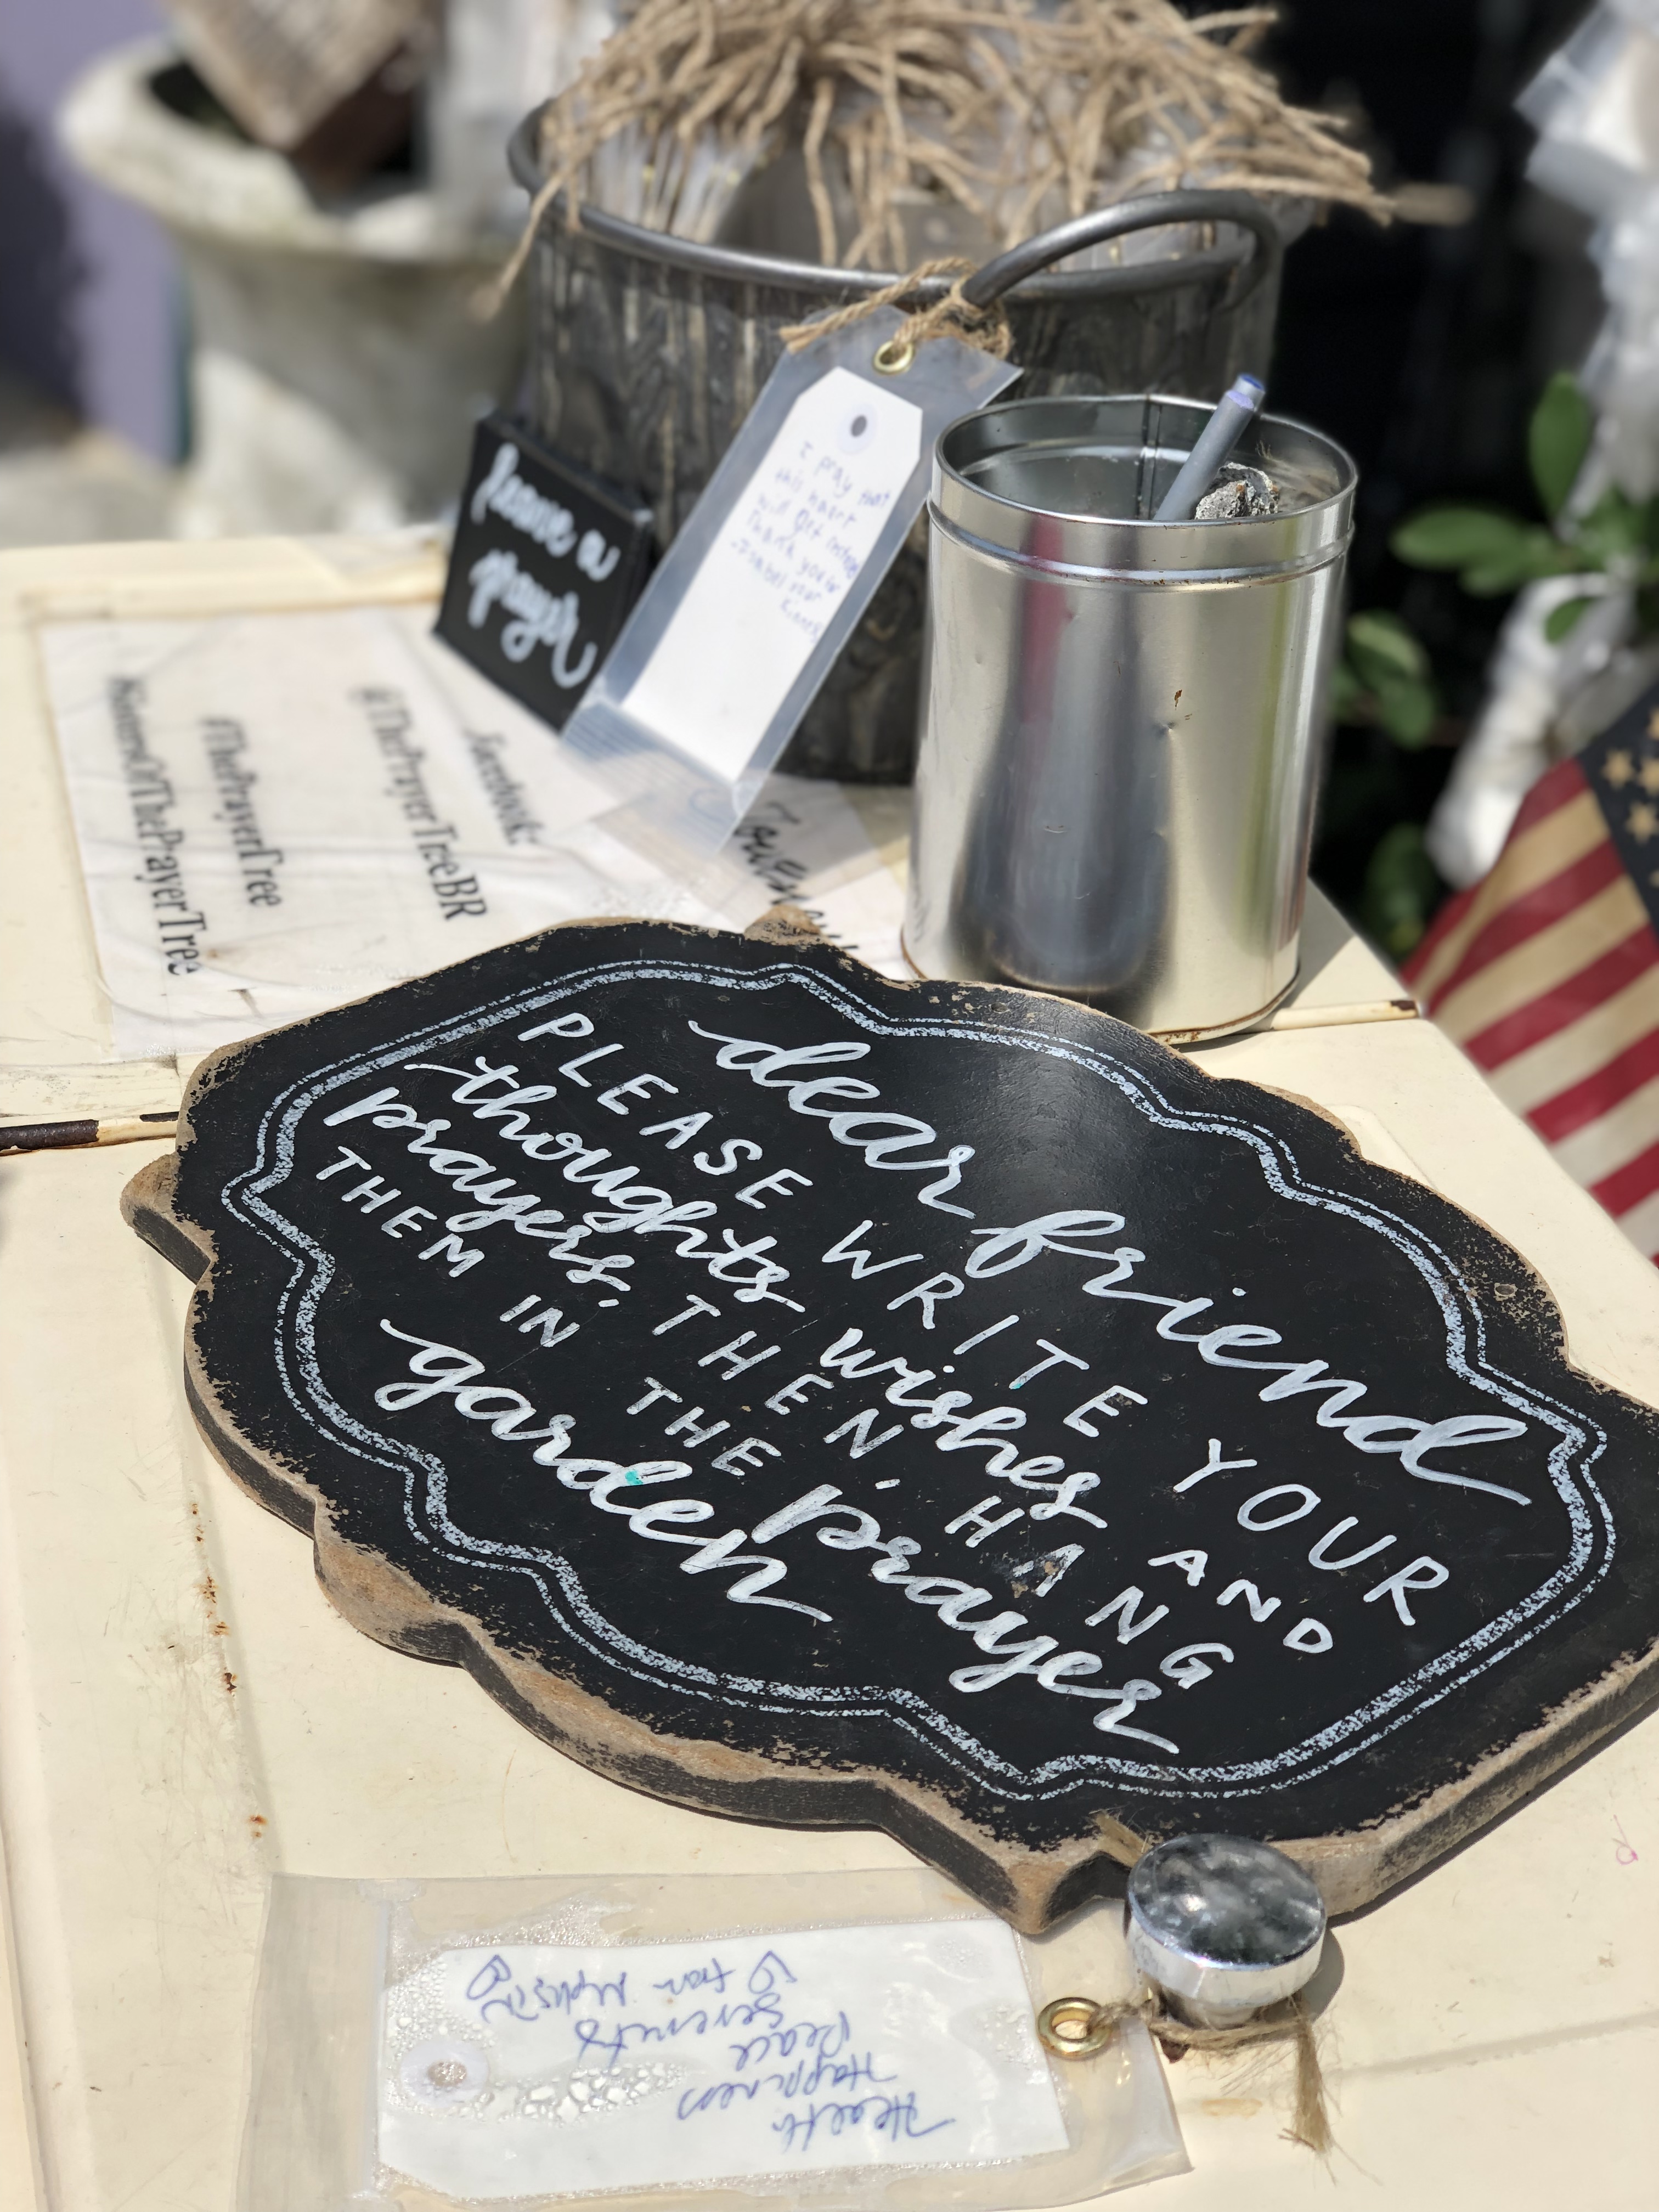 leave a
prayer
I pray that
this heart
will get
Thank you
facebook:
@ThePrayerTreeBR
#ThePrayerTree
#SistersOfThePrayerTree
dear friend
PLEASE WRITE YOUR
thoughts wishes AND
prayers. THEN, HANG
THEM IN THE prayer
garden
Health
Happiness
Peace
Serenity
from